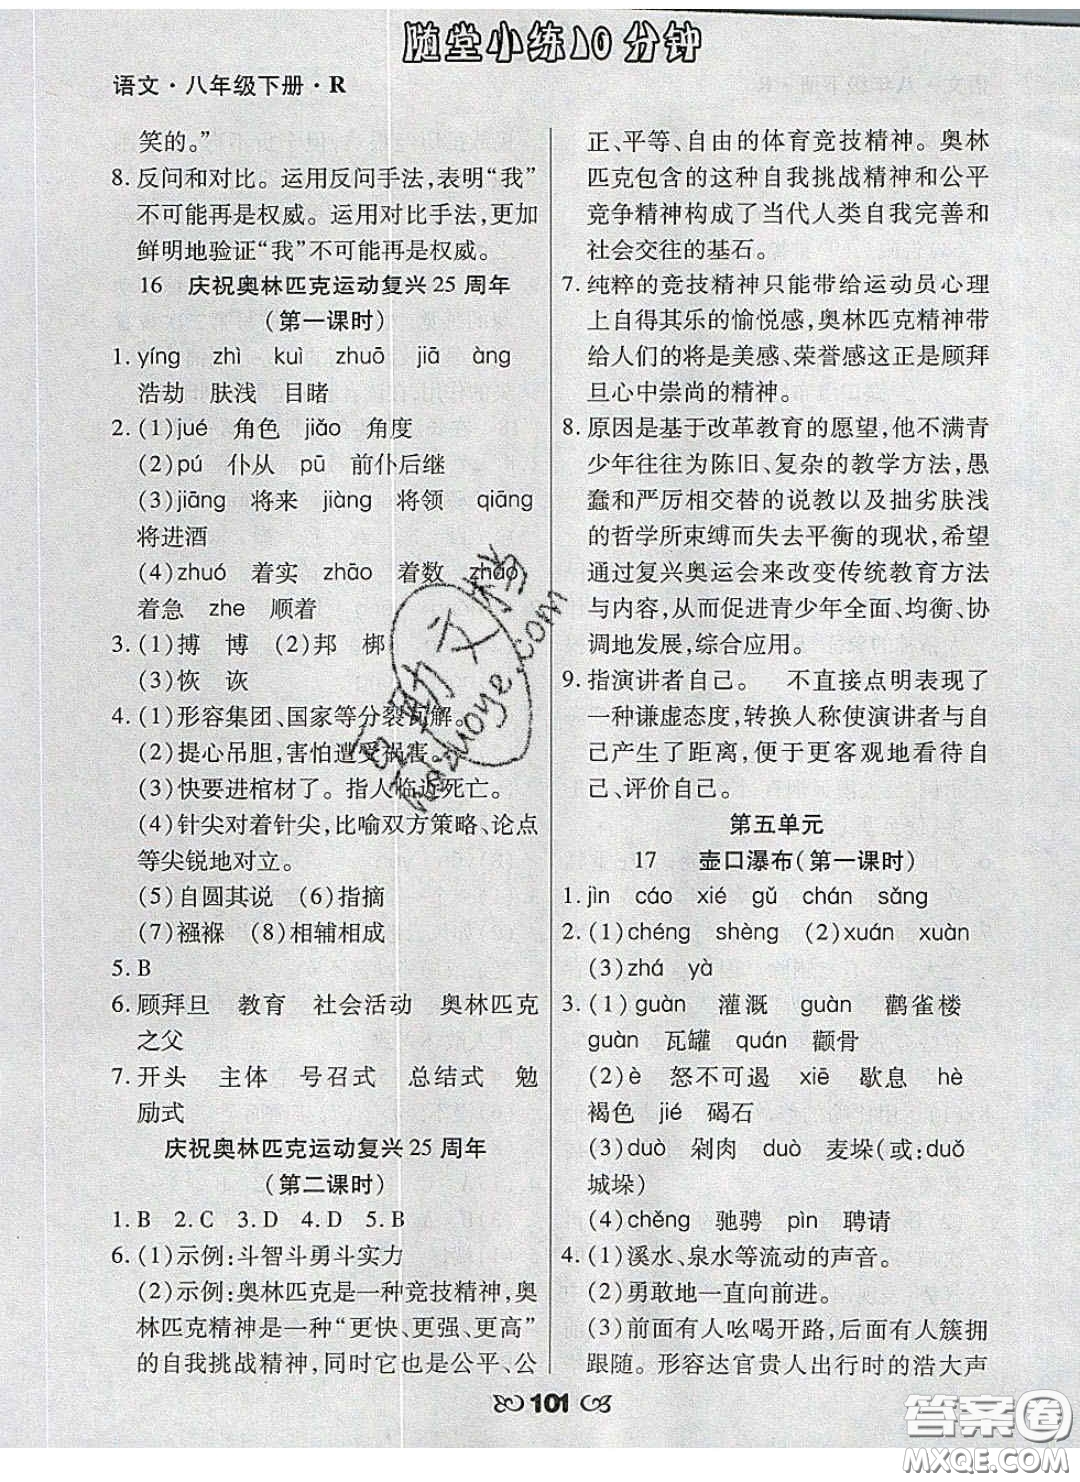 随堂小练10分钟
语文·八年级下册·R
笑的。”
8. 反问和对比。运用反问手法,表明“我”
不可能再是权威。运用对比手法,更加
鲜明地验证“我”不可能再是权威。
16 庆祝奥林匹克运动复兴25周年
(第一课时)
1. yíng zhì kuì zhuō jiā àng
浩劫 肤浅 目睹
2. (1)jué 角色 jiǎo 角度
(2)pú 仆从 pū 前仆后继
(3)jiāng 将来 jiàng 将领 qiāng
将进酒
(4)zhuó 着实 zhāo 着数 zháo
着急 zhe 顺着
3. (1)搏 博 (2)邦 梆
(3)恢 诙
4. (1)形容集团、国家等分裂瓦解。
(2)提心吊胆,害怕遭受祸害。
(3)快要进棺材了。指人临近死亡。
(4)针尖对着针尖,比喻双方策略、论点
等尖锐地对立。
(5)自圆其说 (6)指摘
(7)襁褓 (8)相辅相成
5. B
6. 顾拜旦 教育 社会活动 奥林匹克
之父
7. 开头 主体 号召式 总结式 勉
励式
庆祝奥林匹克运动复兴25周年
(第二课时)
1. B 2. C 3. D 4. D 5. B
6. (1)示例:斗智斗勇斗实力
(2)示例:奥林匹克是一种竞技精神,奥
林匹克精神是一种“更快、更强、更高”
的自我挑战精神,同时它也是公平、公
正、平等、自由的体育竞技精神。奥林
匹克包含的这种自我挑战精神和公平
竞争精神构成了当代人类自我完善和
社会交往的基石。
7. 纯粹的竞技精神只能带给运动员心理
上自得其乐的愉悦感,奥林匹克精神带
给人们的将是美感、荣誉感这正是顾拜
旦心中崇尚的精神。
8. 原因是基于改革教育的愿望,他不满青
少年往往为陈旧、复杂的教学方法,愚
蠢和严厉相交替的说教以及拙劣肤浅
的哲学所束缚而失去平衡的现状,希望
通过复兴奥运会来改变传统教育方法
与内容,从而促进青少年全面、均衡、协
调地发展,综合应用。
9. 指演讲者自己。 不直接点明表现了
一种谦虚态度,转换人称使演讲者与自
己产生了距离,便于更客观地看待自
己、评价自己。
第五单元
17 壶口瀑布(第一课时)
1. jìn cáo xié gǔ chán sǎng
2. (1)chéng shèng (2)xuán xuàn
(3)zhá yà
3. (1)guàn 灌溉 guàn 鹳雀楼
guàn 瓦罐 quán 颧骨
(2)è 怒不可遏 xiē 歇息 hè
褐色 jié 碣石
(3)duò 剁肉 duò 麦垛(或:duǒ
城垛)
(4)chěng 驰骋 pìn 聘请
4. (1)溪水、泉水等流动的声音。
(2)勇敢地一直向前进。
(3)前面有人吆喝开路,后面有人簇拥
跟随。形容达官贵人出行时的浩大声
101
答案圈
MXQE.COM